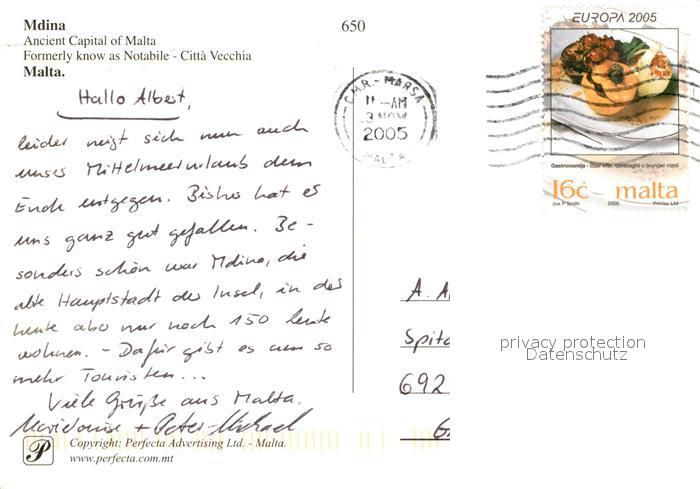 Mdina
Ancient Capital of Malta
Formerly know as Notabile - Città Vecchia
Malta.
650
Hallo Albert,
leider neigt sich nun auch
unser Mittelmeerurlaub dem
Ende entgegen. Bisher hat es
uns ganz gut gefallen. Be-
sonders schön war Mdina, die
alte Hauptstadt der Insel, in der
heute aber nur noch 150 Leute
wohnen. - Dafür gibt es um so
mehr Touristen...
Viele Grüße aus Malta.
+ Peter-Michael
Copyright: Perfecta Advertising Ltd. - Malta.
www.perfecta.com.mt
P
C.M.R. - MARSA
11 - AM
2005
MALTA
EUROPA 2005
Gastronomija - qarabagħli u brunġiel mimli
16c malta
Joe P Smith 2005 Printex Ltd
A. A
Spita
692
privacy protection
Datenschutz